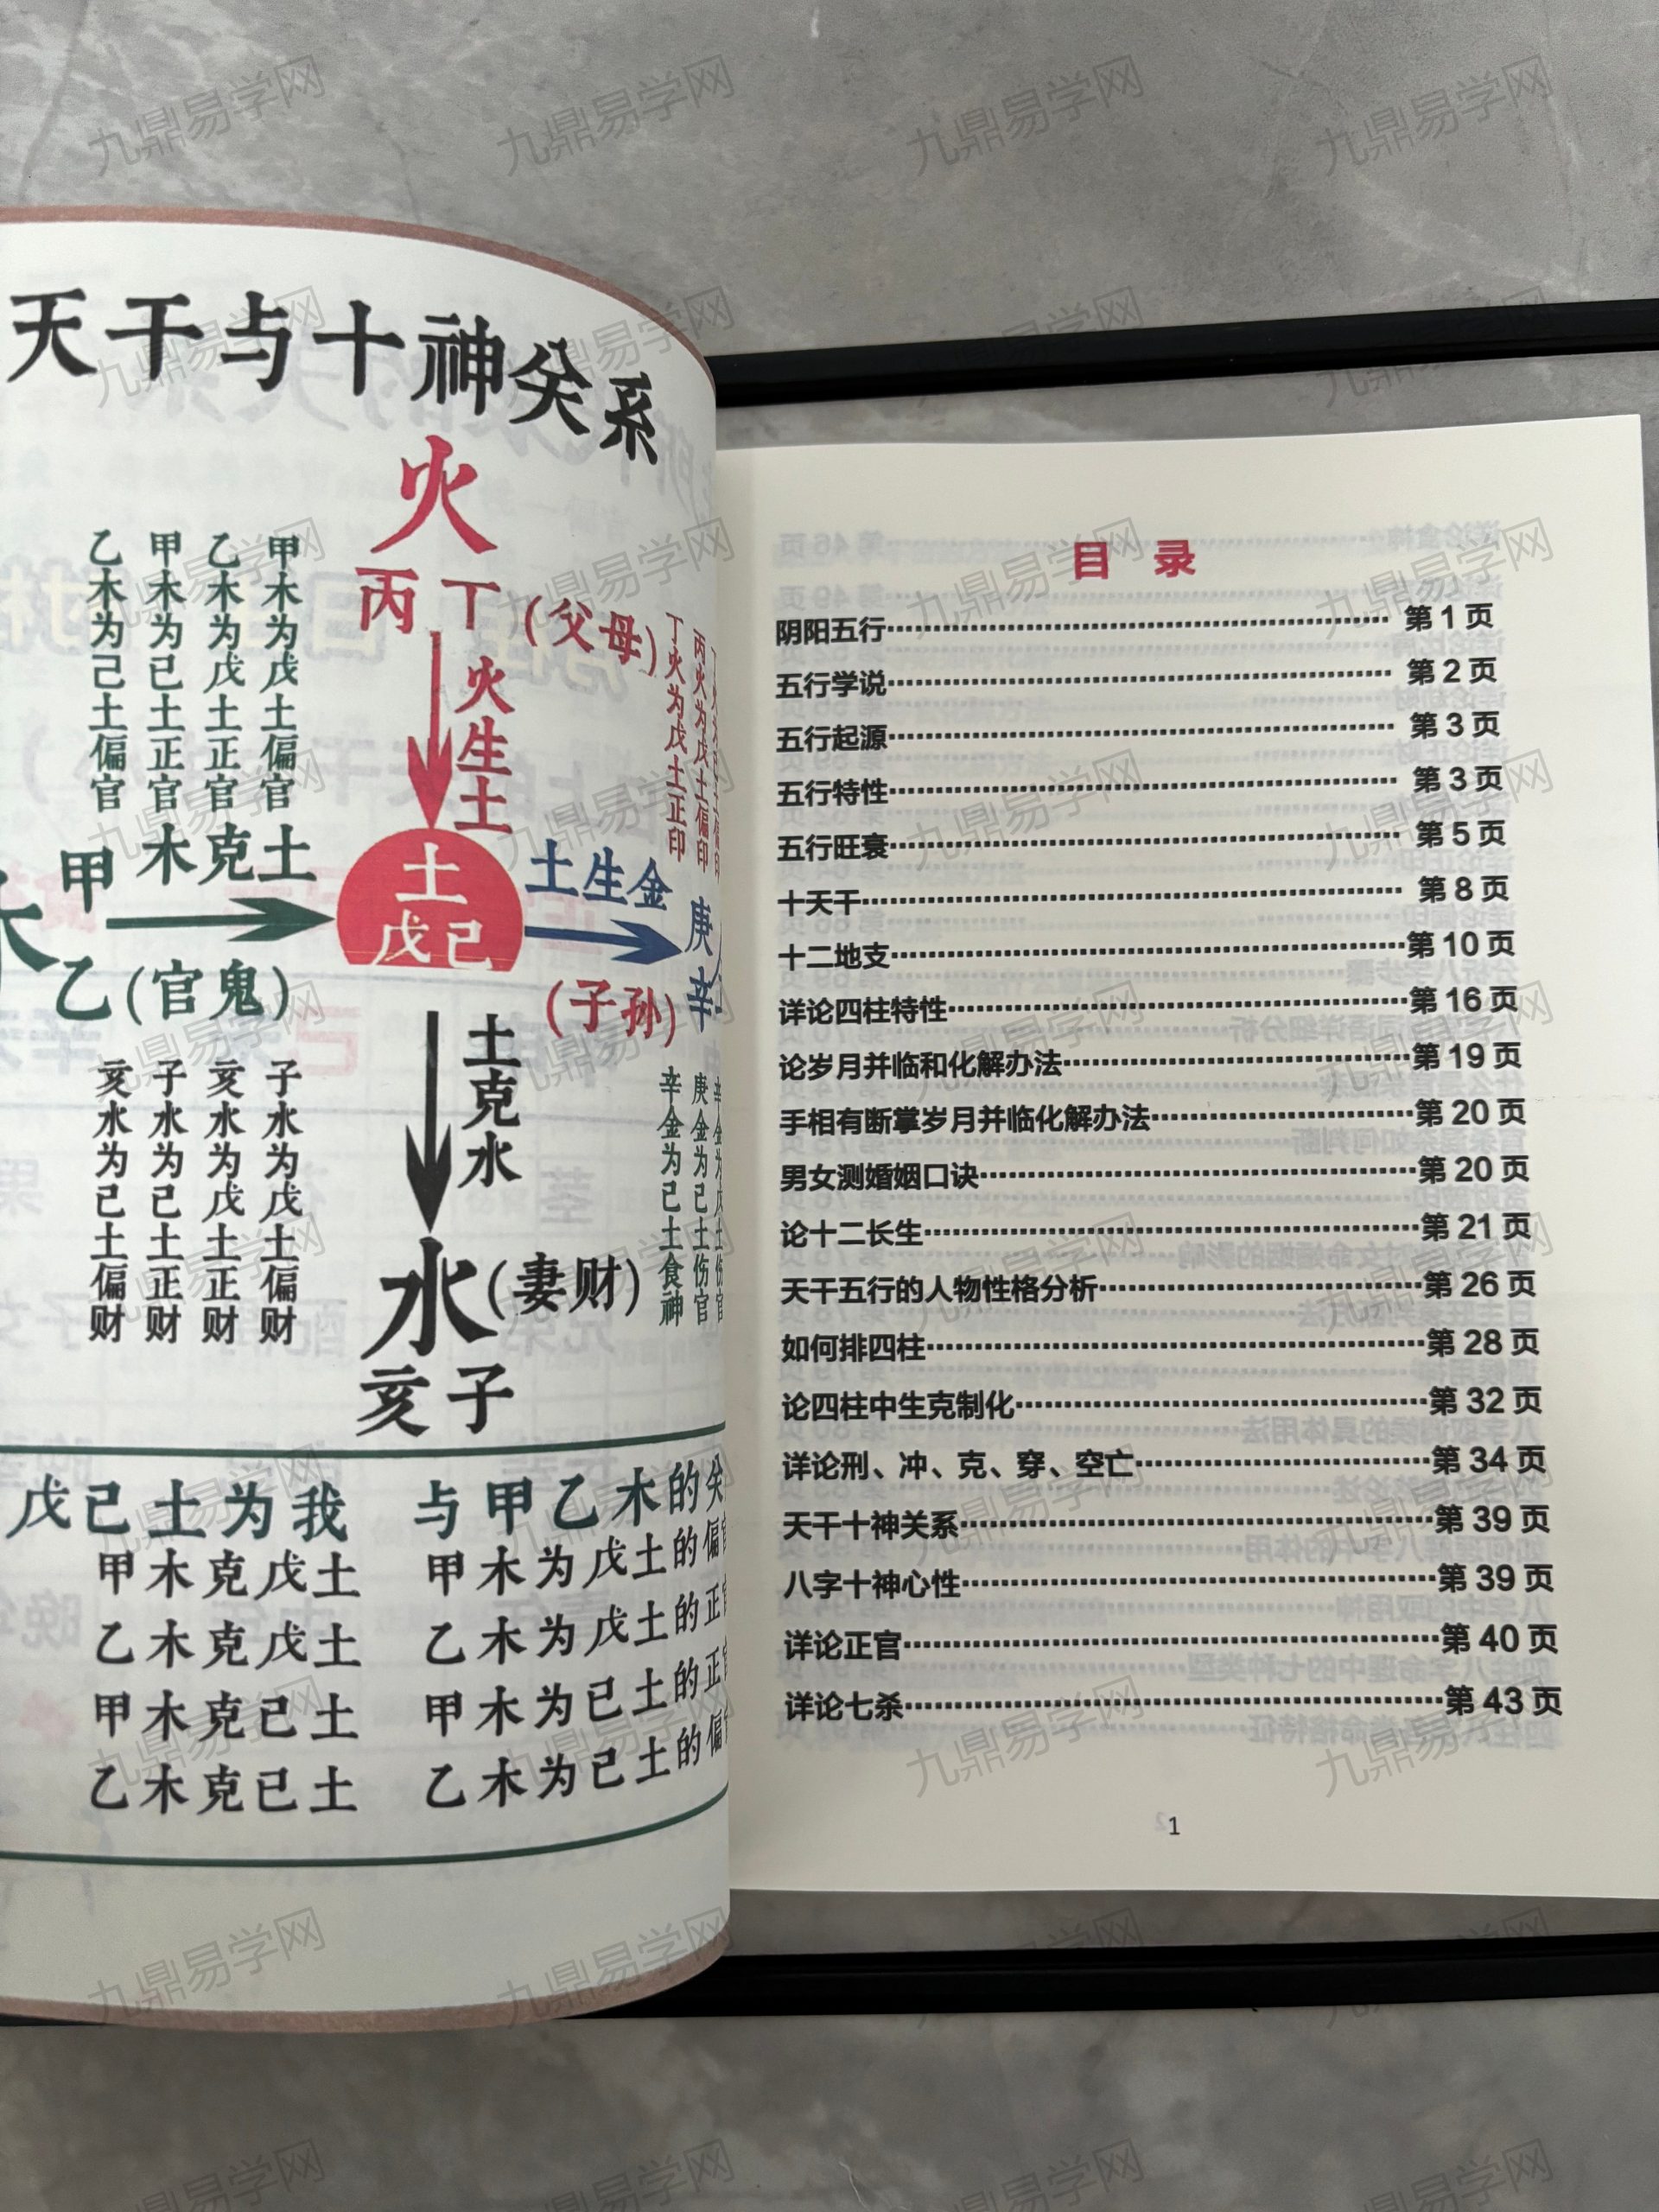 天干与十神关系
火
丙丁(父母)
火生土
乙木为己土偏官
甲木为己土正官
乙木为戊土正官
甲木为戊土偏官
丁火为戊土正印
丙火为戊土偏印
木克土
甲
乙(官鬼)
土
戊己
土生金
庚
辛
(子孙)
土克水
亥水为己土偏财
子水为己土正财
亥水为戊土正财
子水为戊土偏财
辛金为己土食神
庚金为己土伤官
水(妻财)
亥子
戊己土为我 与甲乙木的关
甲木克戊土 甲木为戊土的偏
乙木克戊土 乙木为戊土的正
甲木克己土 甲木为己土的正
乙木克己土 乙木为己土的偏
目 录
阴阳五行 第1页
五行学说 第2页
五行起源 第3页
五行特性 第3页
五行旺衰 第5页
十天干 第8页
十二地支 第10页
详论四柱特性 第16页
论岁月并临和化解办法 第19页
手相有断掌岁月并临化解办法 第20页
男女测婚姻口诀 第20页
论十二长生 第21页
天干五行的人物性格分析 第26页
如何排四柱 第28页
论四柱中生克制化 第32页
详论刑、冲、克、穿、空亡 第34页
天干十神关系 第39页
八字十神心性 第39页
详论正官 第40页
详论七杀 第43页
1
九鼎易学网